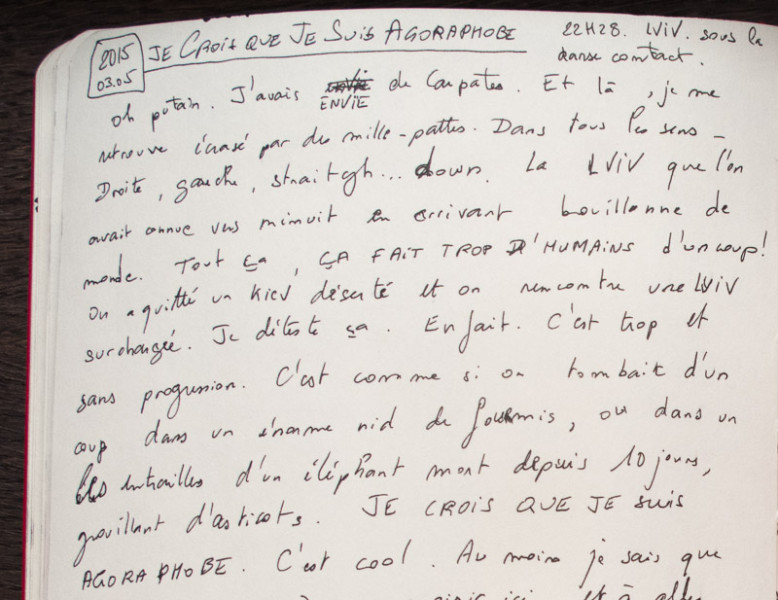 2015
03.05
JE CROIS QUE JE SUIS AGORAPHOBE
22H28. LViV. sous la
danse contact.
Oh putain. J'avais ENVIE de Carpates. Et là, je me
retrouve écrasé par des mille-pattes. Dans tous les sens -
Droite, gauche, straitgh... down. La LViV que l'on
avait connue vers minuit en arrivant bouillonne de
monde. Tout ça, ÇA FAIT TROP D'HUMAINS d'un coup!
On a quitté un Kiev déserté et on rencontre une LViV
surchargée. Je déteste ça. En fait. C'est trop et
sans progression. C'est comme si on tombait d'un
coup dans un énorme nid de fourmis, ou dans un
les entrailles d'un éléphant mort depuis 10 jours,
grouillant d'asticots. JE CROIS QUE JE SUIS
AGORAPHOBE. C'est cool. Au moins je sais que
ici, et à aller